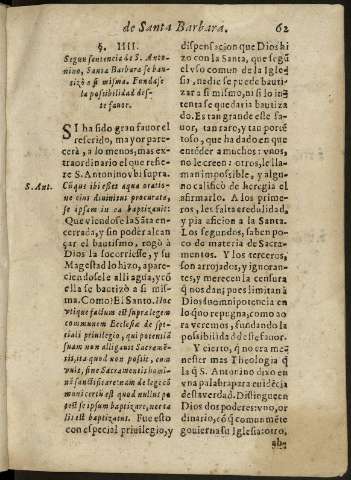 de Santa Barbara. 62
§. IIII.
Segun sentencia de S. Anto-
nino, Santa Barbara se bau-
tizò a si misma. Fundase
la posibilidad des-
te fauor.
SI ha sido gran fauor el
referido, mayor pare
cerà, a lo menos, mas ex
traordinario el que refie
re S. Antonino vbi supra.
S. Ant.
Cũque ibi esset aqua oratio-
ne eius diuinitus procurata,
se ipsam in ea baptizauit:
Que viendose la Sãta en-
cerrada, y sin poder alcan
çar el bautismo, rogò à
Dios la socorriesse, y su
Magestad lo hizo, apare-
ciendosele alli agua, y cõ
ella se bautizò a si mis-
ma. Como? El Santo. Hoc
vtique factum est supra legem
communem Ecclesiæ de spe-
ciali priuilegio, qui potentiã
suam non alligauit Sacramẽ-
tis, ita quod non possit, cum
vult, sine Sacramentis homi-
nẽ sanctificare nam de lege cõ
muni certũ est quod nullus po
test se ipsum baptizare, nec ta
lis est baptizatus. Fue esto
con especial priuilegio, y
dispensacion que Dios hi
zo con la Santa, que segũ
el vso comun de la Igle
sia, nadie se puede bauti
zar a si mismo, ni si lo in
tenta se quedaria bautiza
do. Es tan grande este fa-
uor, tan raro, y tan portẽ
toso, que ha dado en que
entẽder a muchos: vnos,
no le creen: otros, le lla-
man impossible, y algu-
no calificò de heregia el
afirmarlo. A los prime-
ros, les falta credulidad,
y pia aficion a la Santa.
Los segundos, saben po-
co de materia de Sacra-
mentos. Y los terceros,
son arrojados, y ignoran-
tes, y merecen la censura
q̃ nos dan; pues limitan à
Dios su omnipotencia en
lo que no repugna, como ao
ra veremos, fundando la
possibilidad desse fauor.
Y cierto, q̃ no era me-
nester mas Theologia q̃
la q̃ S. Antonino dixo en
vna palabra para euidẽcia
desta verdad. Distinguen
Dios dos poderes: vno, or
dinario, cõ q̃ comunmẽte
gouierna su Iglesia: otro,